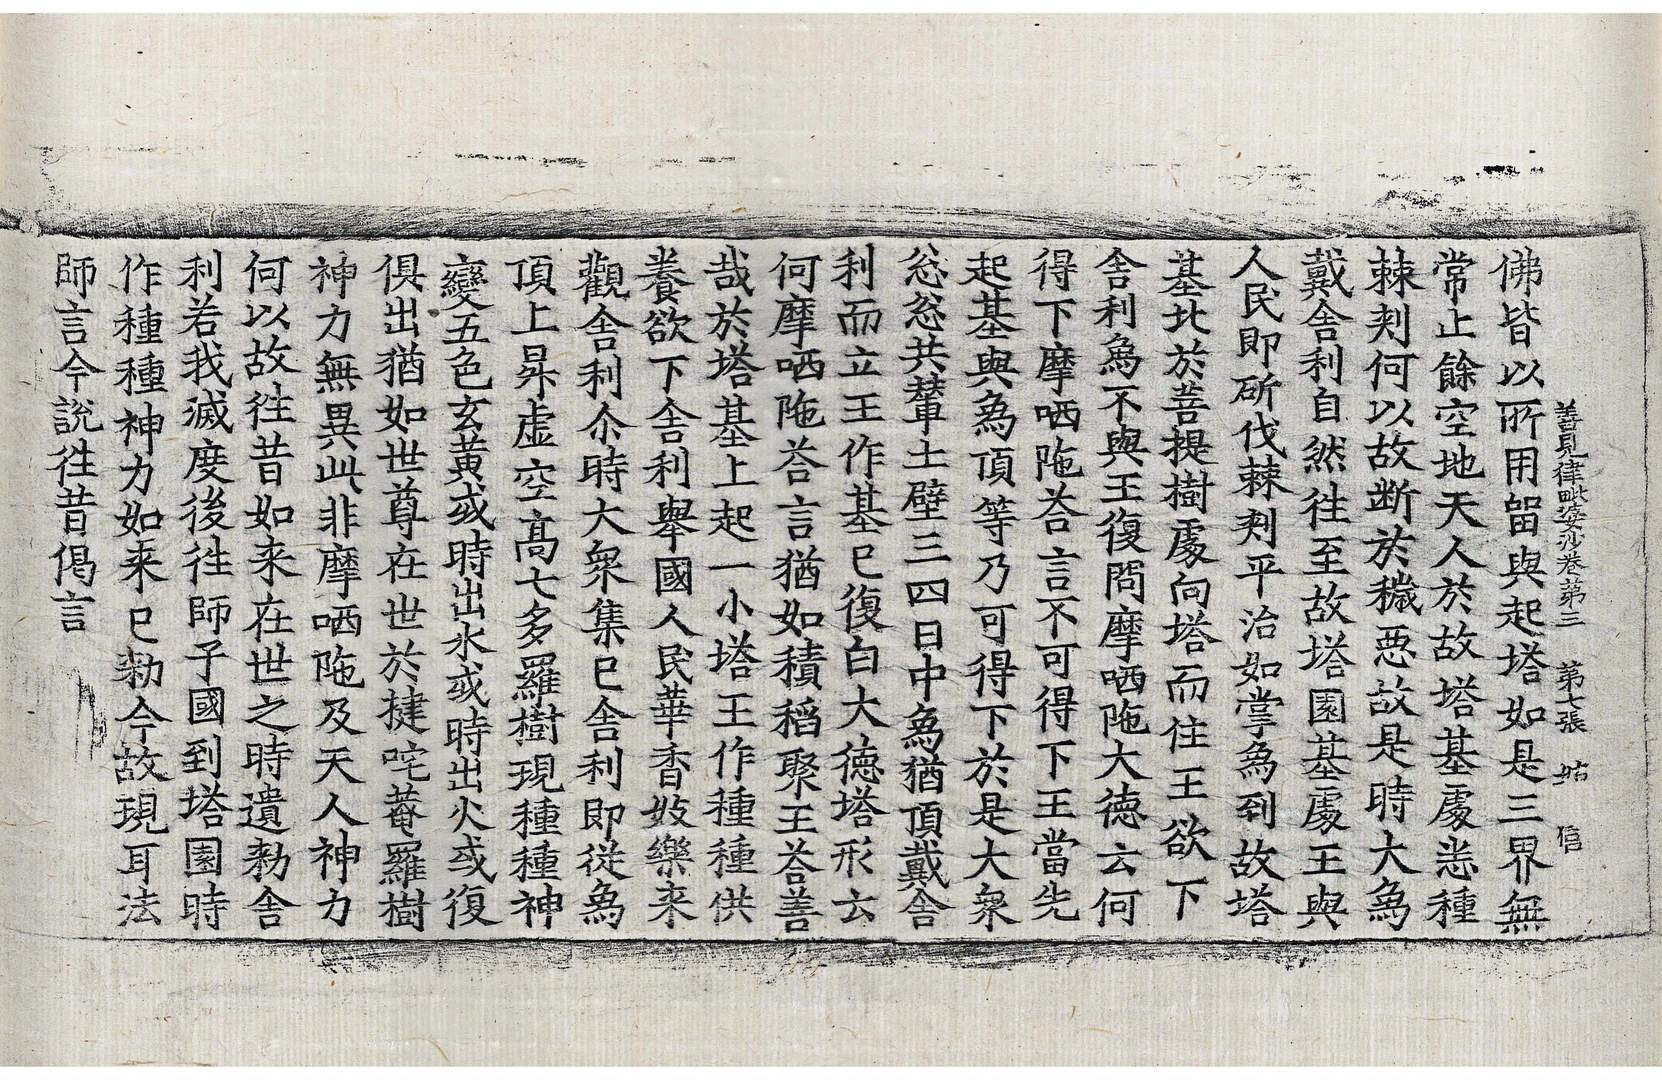 善見律毗婆沙卷第三　第七張　姑　信
佛皆以所用留與起塔如是三界無
常止餘空地天人於故塔基處恙種
棘刾何以故断於穢惡故是時大爲
戴舍利自然往至故塔園基處王與
人民即斫伐棘刾平治如掌爲到故塔
基北於菩提樹處向塔而住王欲下
舍利爲不與王復問摩哂陁大德云何
得下摩哂陁荅言不可得下王當先
起基與爲頂等乃可得下於是大衆
忩忩共輂土壁三四日中爲猶頂戴舍
利而立王作基已復白大德塔形云
何摩哂陁荅言猶如積稻聚王荅善
哉於塔基上起一小塔王作種種供
養欲下舍利舉國人民華香妓樂来
觀舍利尒時大衆集已舍利即從爲
頂上昇虚空高七多羅樹現種種神
變五色玄黄或時出水或時出火或復
俱出猶如世尊在世於揵咤菴羅樹
神力無異此非摩哂陁及天人神力
何以故往昔如来在世之時遺勑舍
利若我滅度後往師子國到塔園時
作種種神力如来已勑今故現耳法
師言今說往昔偈言